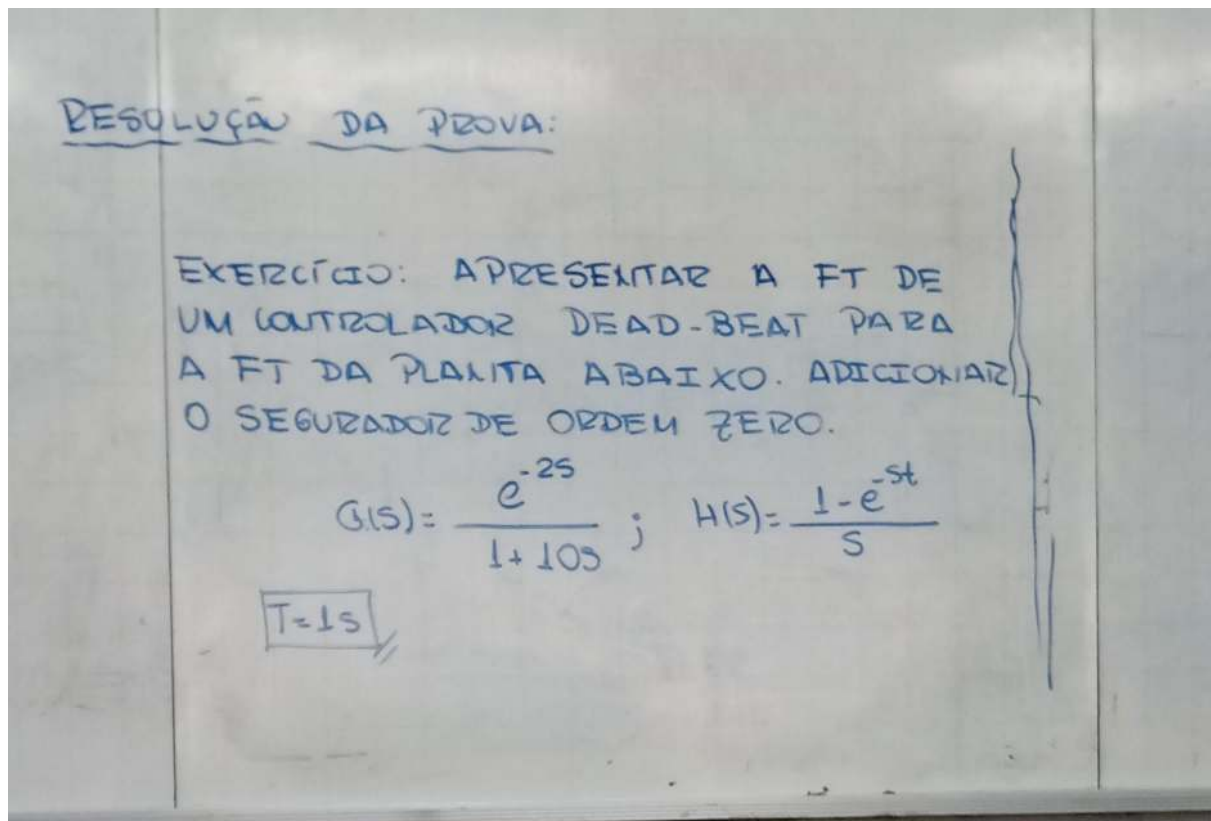 RESOLUÇÃO DA PROVA:
EXERCÍCIO: APRESENTAR A FT DE
UM CONTROLADOR DEAD-BEAT PARA
A FT DA PLANTA ABAIXO. ADICIONAR
O SEGURADOR DE ORDEM ZERO.
G(S)= e^-2S / 1+10S ; H(S)= 1-e^-St / S
T=1S